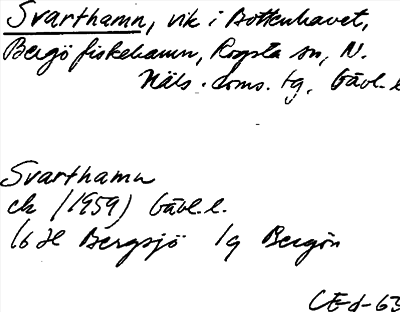 Svarthamn, vik i Bottenhavet,
Bergö fiskehamn, Rogsta sn, N.
Häls. doms. tg, Gävl. l
Svarthamn
ek (1959) Gävl. l.
16 H Bergsjö 1g Bergön
CEd-63